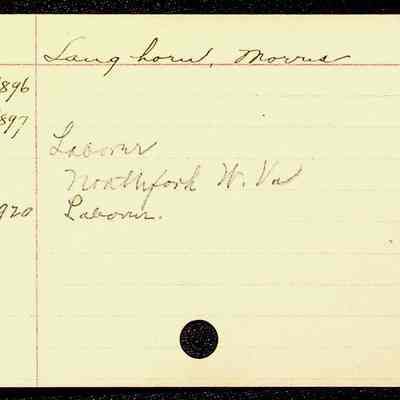 Langhorn, Morris
1896
1897
Laborer
Northfork W. Va
1920 Laborer.